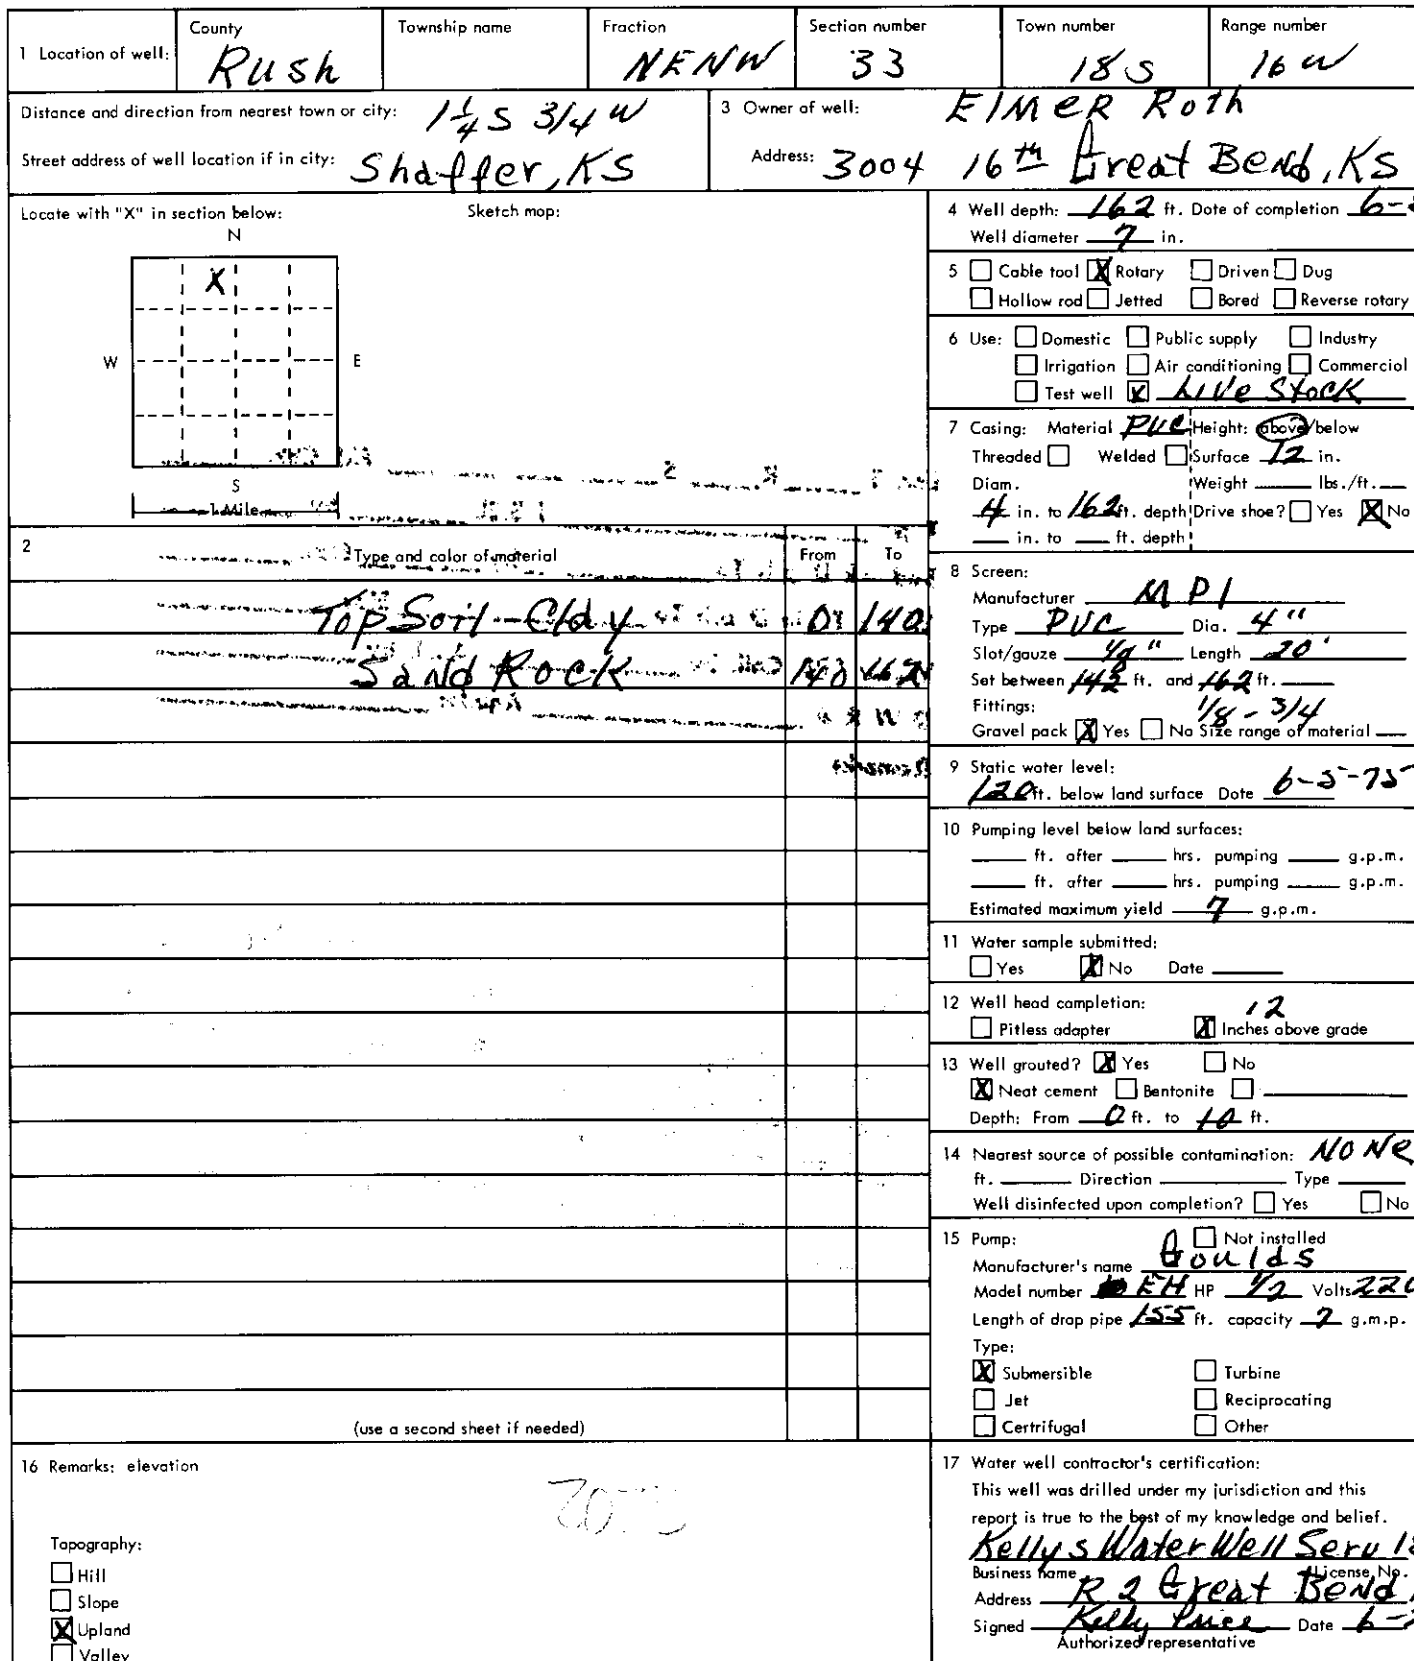 1 Location of well: County Rush Township name Fraction NENW Section number 33 Town number 18 S Range number 16 W
Distance and direction from nearest town or city: 1 1/4 S 3/4 W
Street address of well location if in city: Shaffer, KS
3 Owner of well: ElMeR Roth
Address: 3004 16th Great Bend, KS
Locate with "X" in section below: Sketch map:
N
X
W E
S
1 Mile
2 Type and color of material From To
Top Soil - Clay 0 140
Sand Rock 140 162
(use a second sheet if needed)
4 Well depth: 162 ft. Date of completion 6-
Well diameter 7 in.
5 Cable tool X Rotary Driven Dug
Hollow rod Jetted Bored Reverse rotary
6 Use: Domestic Public supply Industry
Irrigation Air conditioning Commercial
Test well X Live Stock
7 Casing: Material PVC Height: above/below
Threaded Welded Surface 12 in.
Diam. Weight lbs./ft.
4 in. to 162 ft. depth Drive shoe? Yes X No
in. to ft. depth
8 Screen:
Manufacturer M P I
Type PVC Dia. 4"
Slot/gauze 1/8" Length 20'
Set between 142 ft. and 162 ft.
Fittings: 1/8 - 3/4
Gravel pack X Yes No Size range of material
9 Static water level:
120 ft. below land surface Date 6-5-75
10 Pumping level below land surfaces:
ft. after hrs. pumping g.p.m.
ft. after hrs. pumping g.p.m.
Estimated maximum yield 7 g.p.m.
11 Water sample submitted:
Yes X No Date
12 Well head completion: 12
Pitless adapter X Inches above grade
13 Well grouted? X Yes No
X Neat cement Bentonite
Depth: From 0 ft. to 10 ft.
14 Nearest source of possible contamination: NONe
ft. Direction Type
Well disinfected upon completion? Yes No
15 Pump: Not installed
Manufacturer's name Goulds
Model number EH HP 1/2 Volts 220
Length of drop pipe 155 ft. capacity 7 g.m.p.
Type:
X Submersible Turbine
Jet Reciprocating
Certrifugal Other
16 Remarks: elevation
Topography:
Hill
Slope
X Upland
Valley
17 Water well contractor's certification:
This well was drilled under my jurisdiction and this
report is true to the best of my knowledge and belief.
Kellys Water Well Serv
Business name License No.
Address R 2 Great Bend
Signed Kelly Price Date 6-
Authorized representative